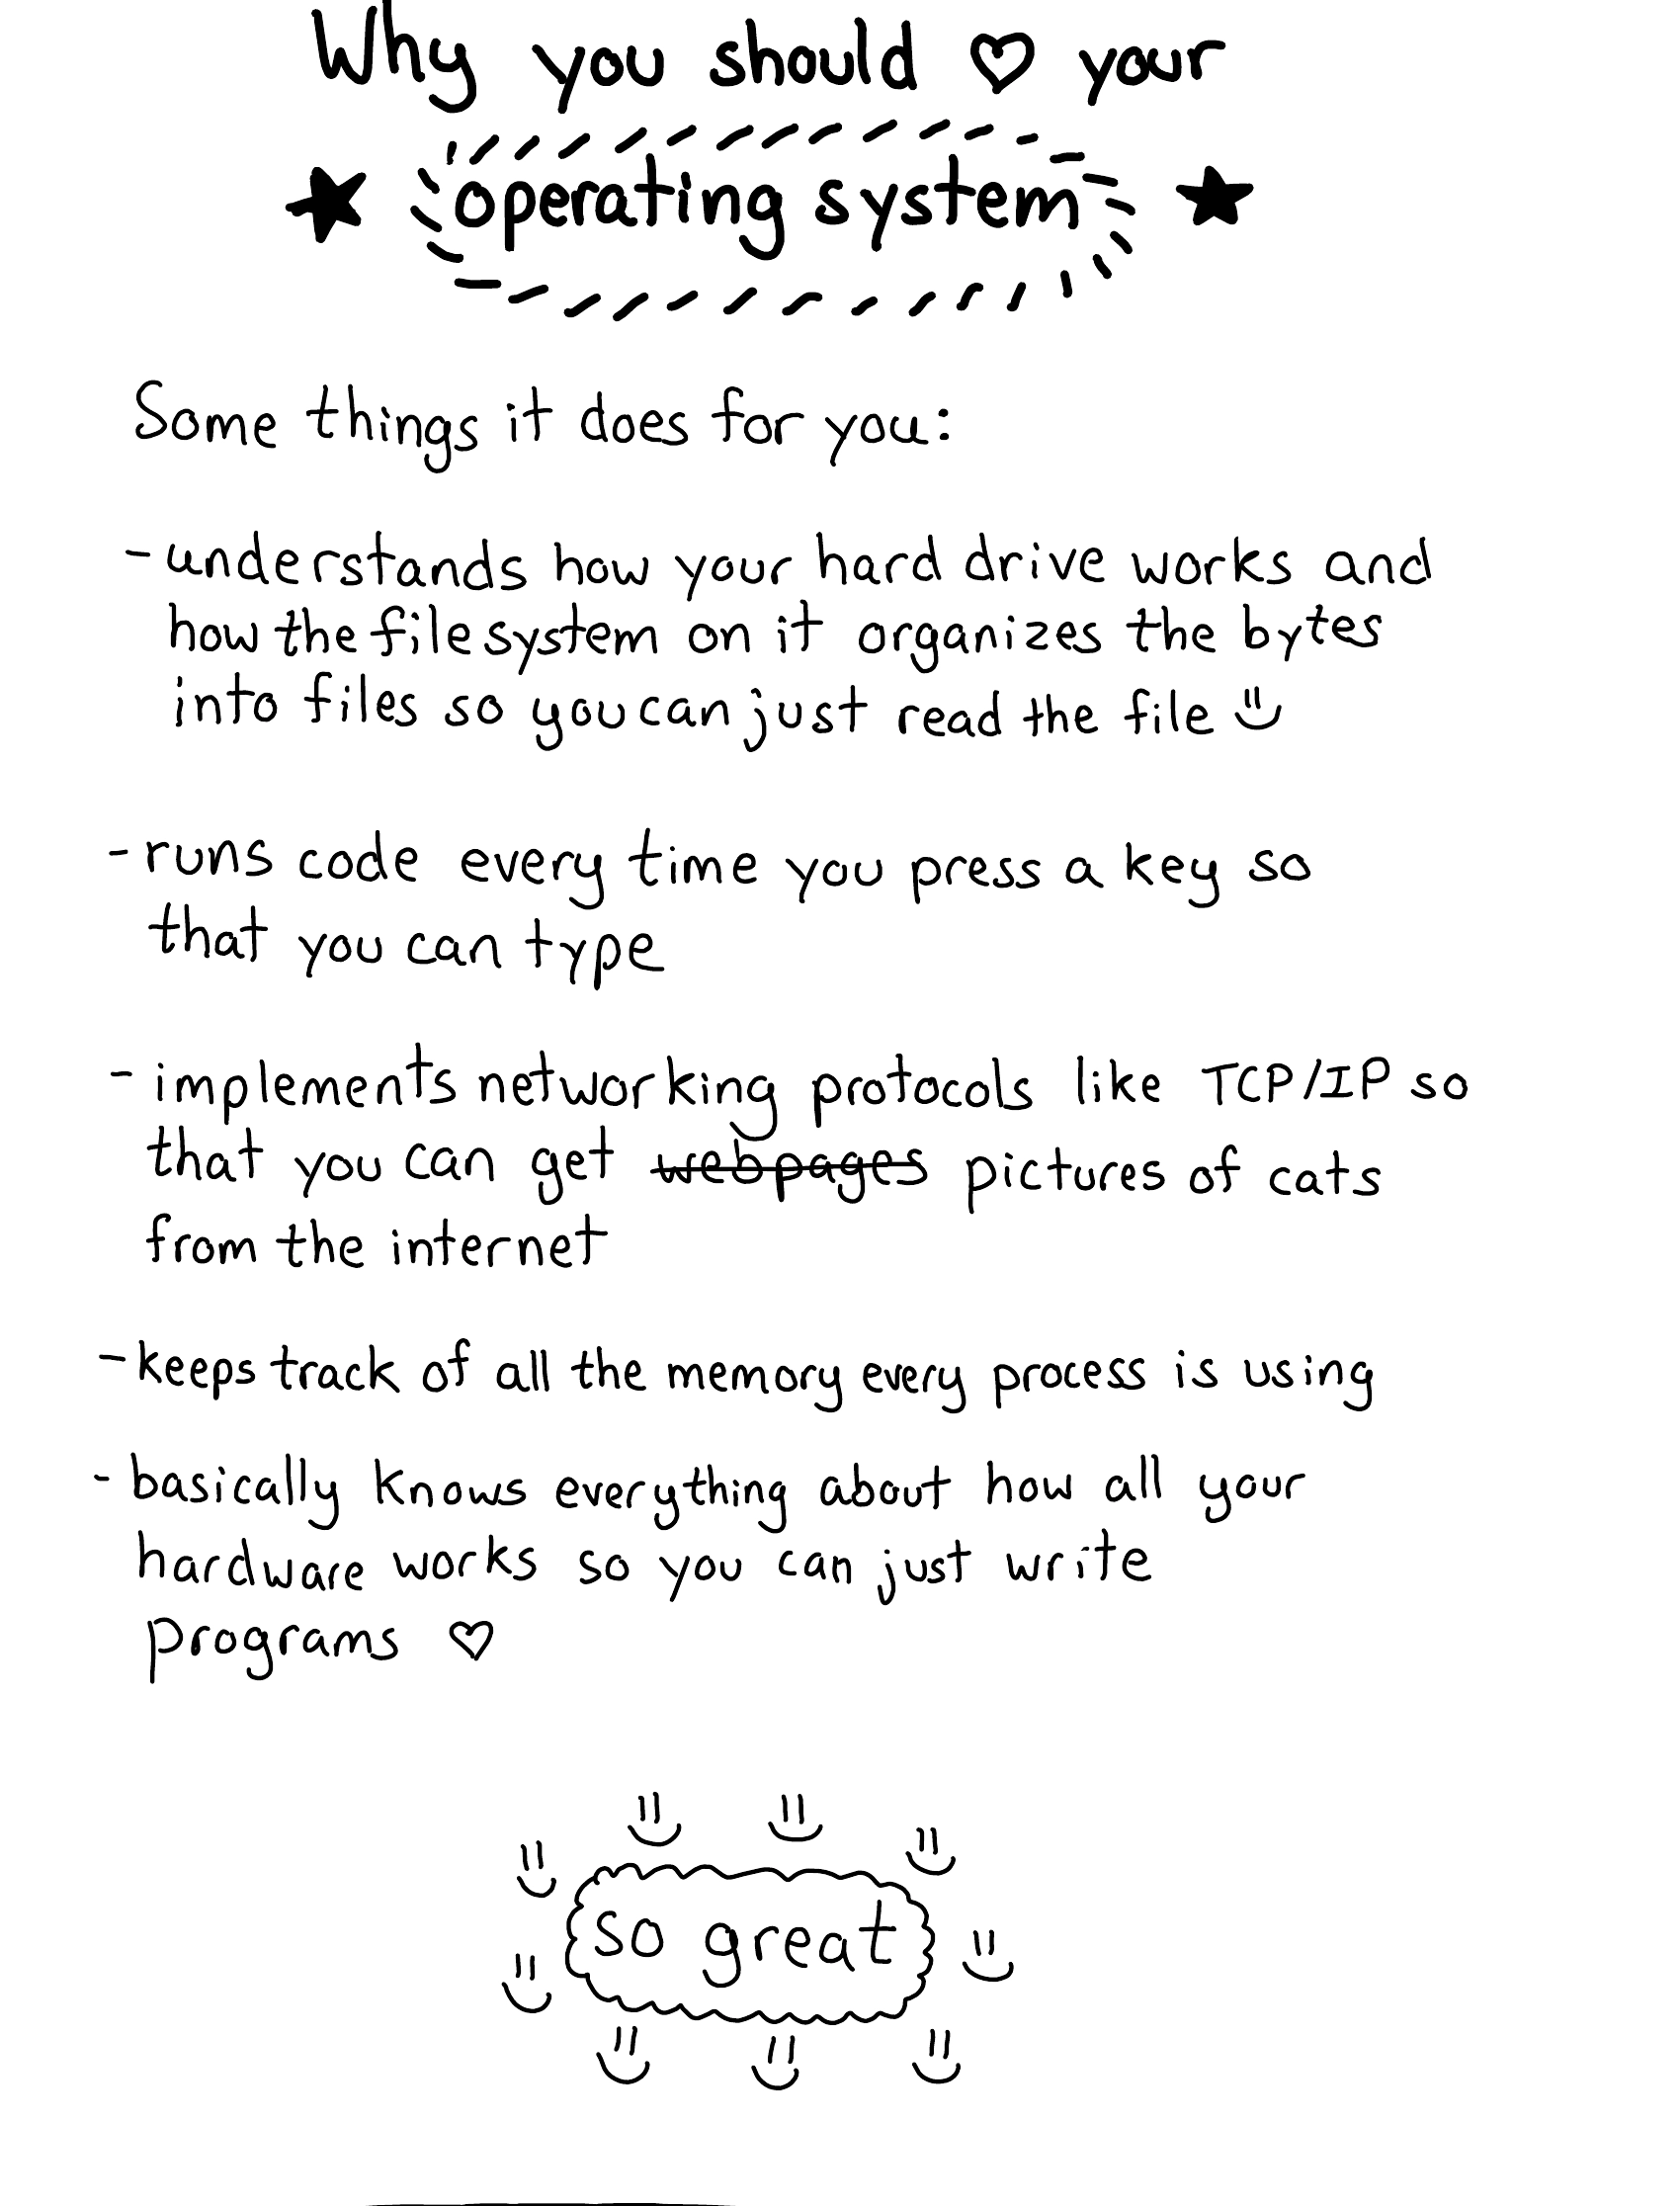 Why you should ♡ your
★ operating system ★
Some things it does for you:
- understands how your hard drive works and
how the filesystem on it organizes the bytes
into files so you can just read the file
- runs code every time you press a key so
that you can type
- implements networking protocols like TCP/IP so
that you can get webpages pictures of cats
from the internet
- keeps track of all the memory every process is using
- basically knows everything about how all your
hardware works so you can just write
programs ♡
so great